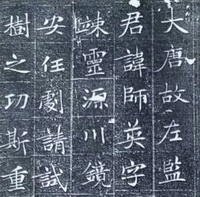 大唐故左監
君諱師英字
竦靈源川鏡
安任劇請試
樹之功斯重